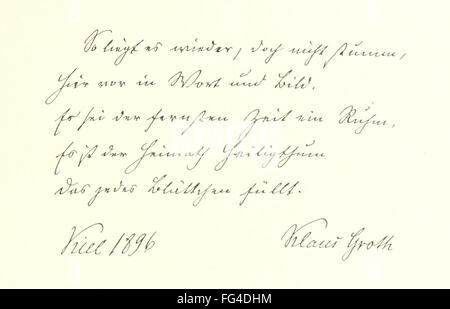 So liegt es wieder, doch nicht stumm,
Hier vor in Wort und Bild.
Es sei der fernsten Zeit ein Ruhm,
Es ist der Heimath Heiligthum
Das jedes Blättchen füllt.
Kiel 1896 Klaus Groth
alamy
FG4DHM
www.alamy.com